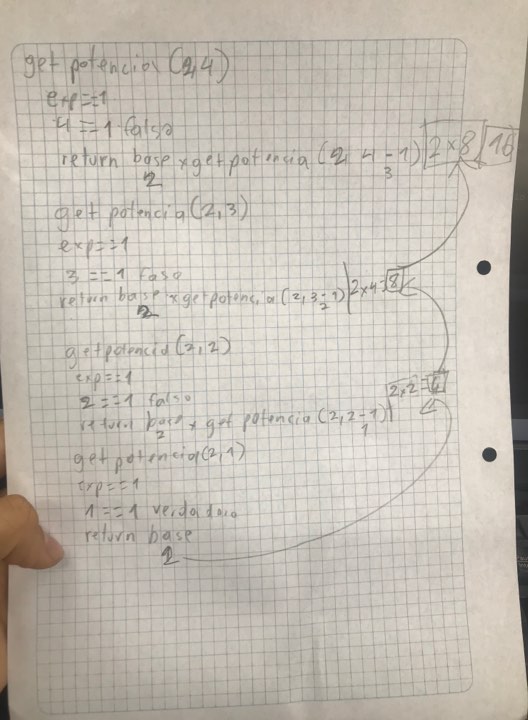 get potencia (2,4)
exp==1
4 == 1 falso
return base x get potencia (2, 4-1) 2x8 16
2 3
get potencia (2,3)
exp==1
3 ==1 faso
return base x get potencia (2,3-1) 2x4=8
2 2
get potencia (2,2)
exp==1
2 ==1 falso
return base x get potencia (2,2-1) 2x2=4
2 1
get potencia (2,1)
exp==1
1 ==1 verdadero
return base
2